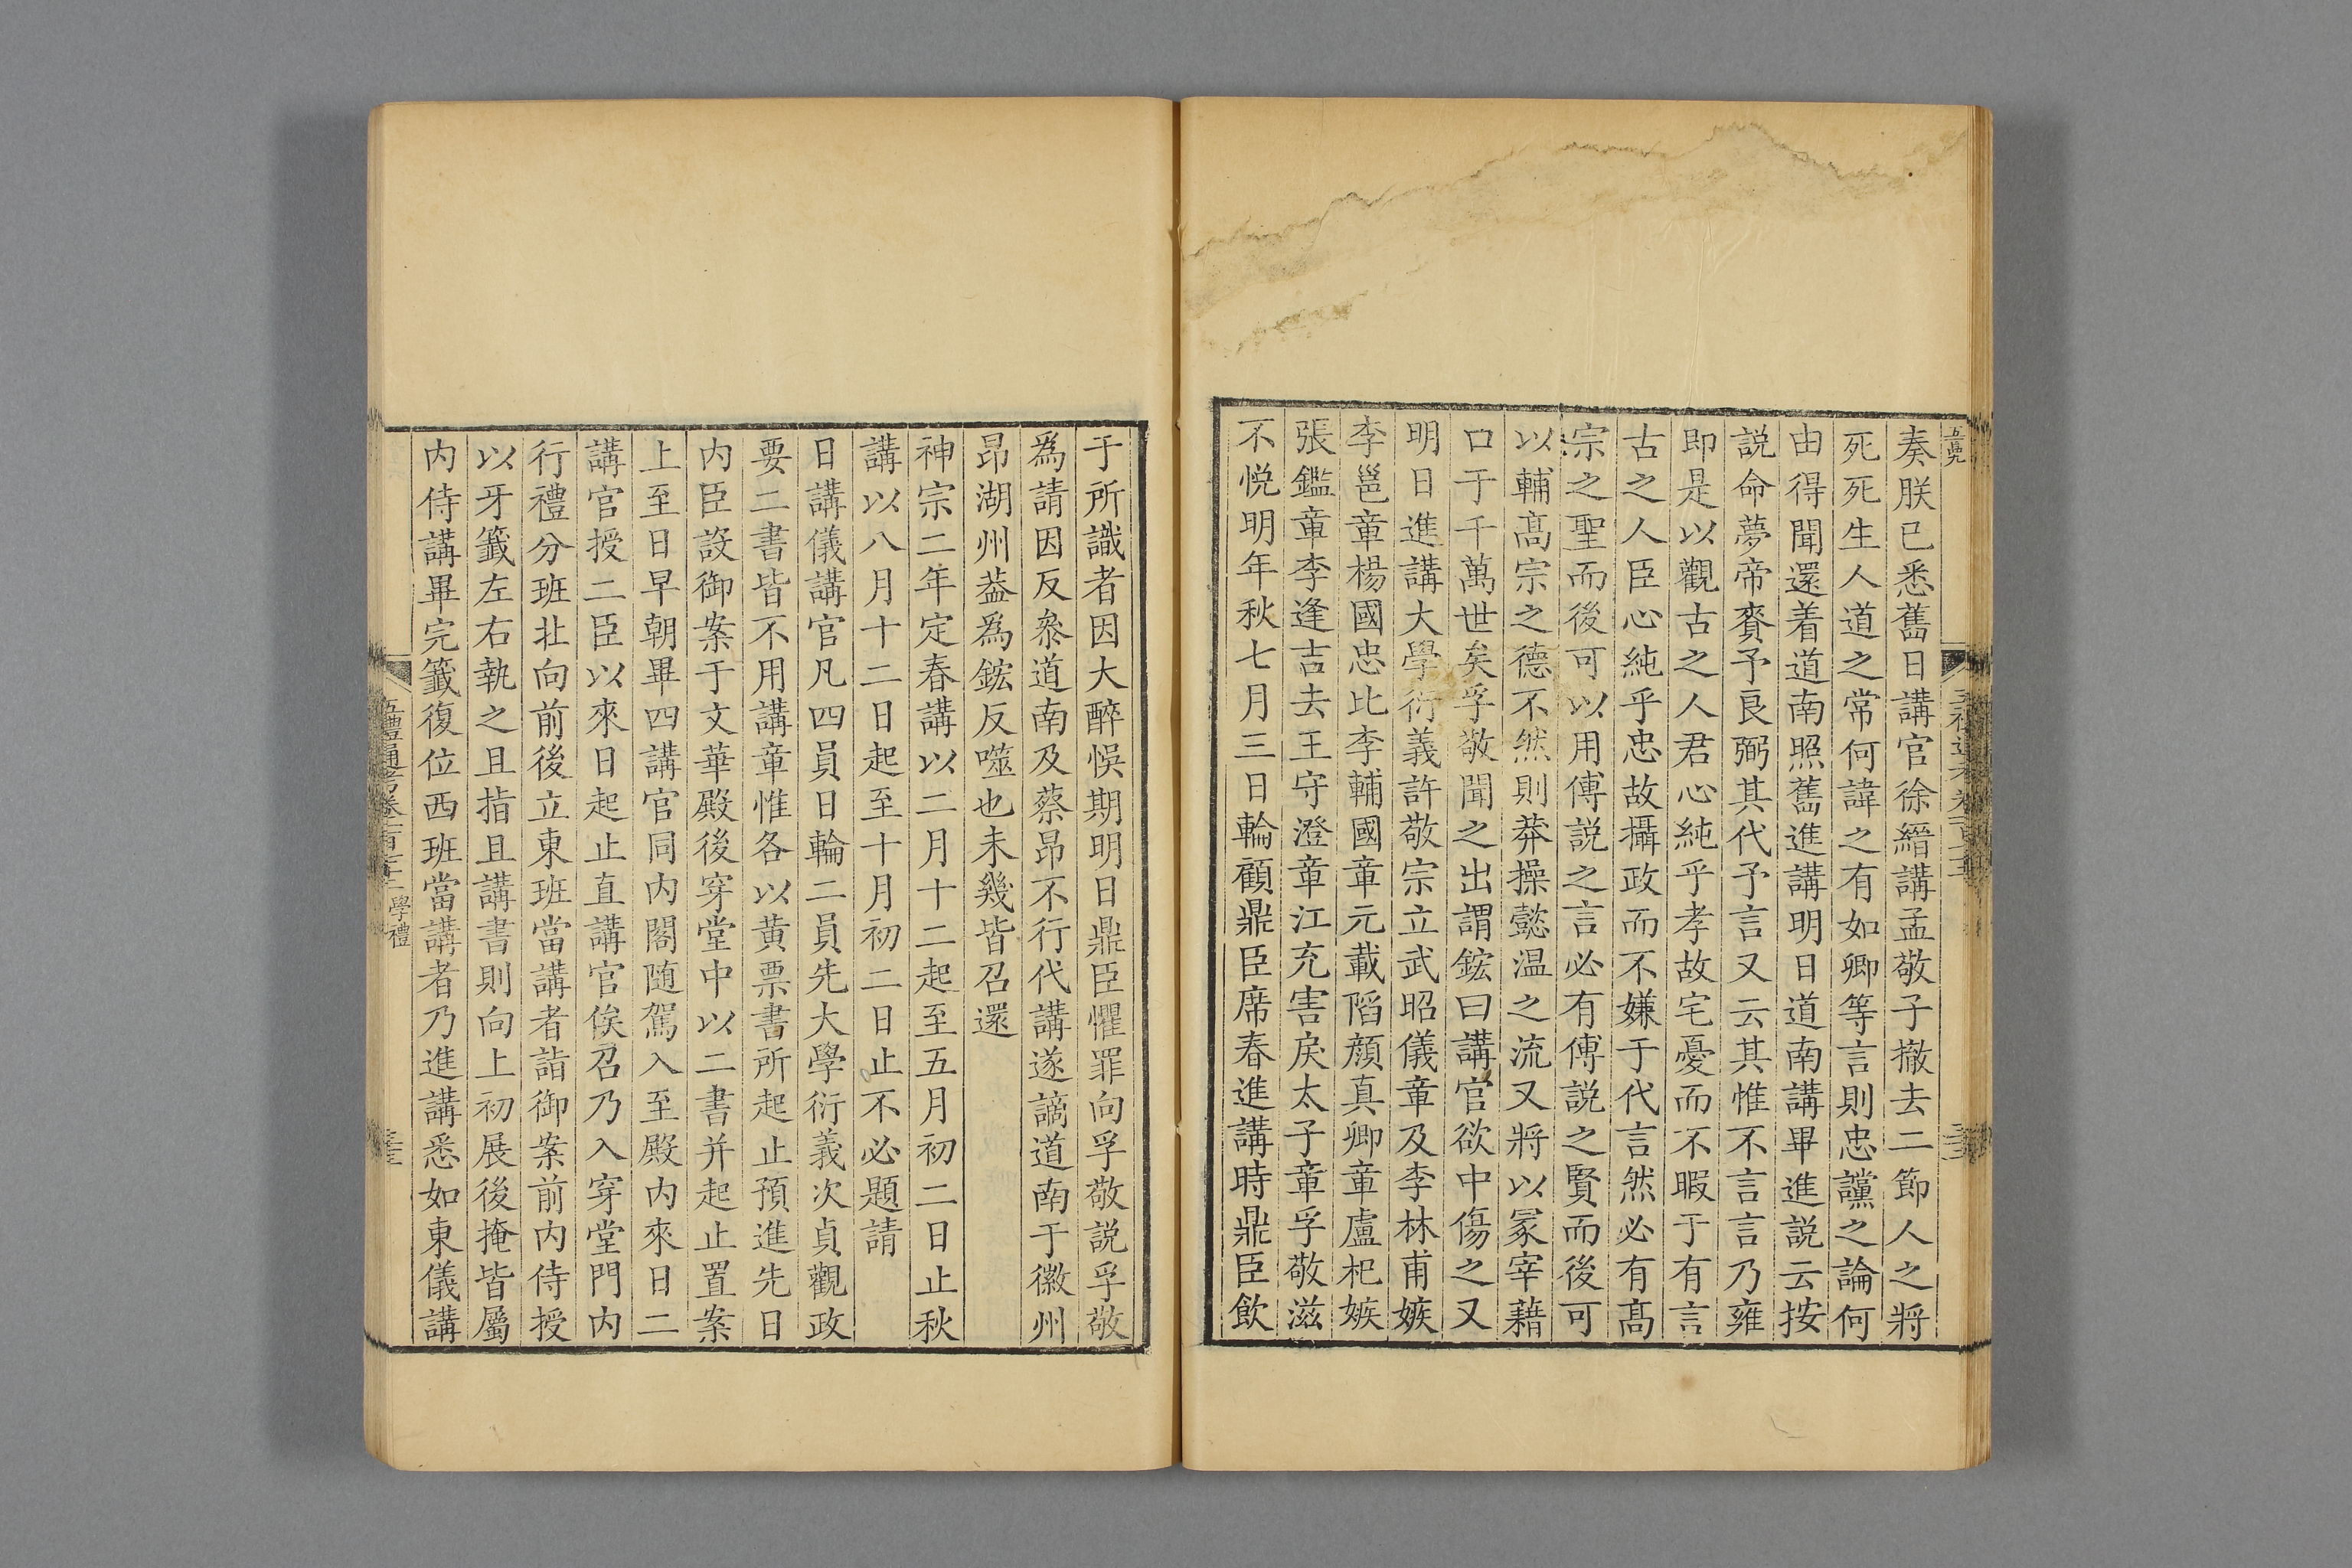 奏朕已悉舊日講官徐縉講孟敬子撤去二節人之將
死死生人道之常何諱之有如卿等言則忠讜之論何
由得聞還着道南照舊進講明日道南講畢進説云按
説命夢帝賚予良弼其代予言又云其惟不言言乃雍
即是以觀古之人君心純乎孝故宅憂而不暇于有言
古之人臣心純乎忠故攝政而不嫌于代言然必有髙
宗之聖而後可以用傅説之言必有傅説之賢而後可
以輔髙宗之德不然則莽操懿温之流又將以冡宰藉
口于千萬世矣孚敬聞之出謂鋐曰講官欲中傷之又
明日進講大學衍義許敬宗立武昭儀章及李林甫嫉
李邕章楊國忠比李輔國章元載䧟顔真卿章盧杞嫉
張鑑章李逢吉去王守澄章江充害戾太子章孚敬滋
不悦明年秋七月三日輪顧鼎臣席春進講時鼎臣飲
于所識者因大醉悞期明日鼎臣懼罪向孚敬説孚敬
為請因反叅道南及蔡昂不行代講遂謫道南于徽州
昂湖州葢為鋐反噬也未幾皆召還
神宗二年定春講以二月十二起至五月初二日止秋
講以八月十二日起至十月初二日止不必題請
日講儀講官凡四員日輪二員先大學衍義次貞觀政
要二書皆不用講章惟各以黄票書所起止預進先日
内臣設御案于文華殿後穿堂中以二書并起止置案
上至日早朝畢四講官同内閣随駕入至殿内來日二
講官授二臣以來日起止直講官俟召乃入穿堂門内
行禮分班北向前後立東班當講者詣御案前内侍授
以牙籤左右執之且指且講書則向上初展後掩皆屬
内侍講畢完籤復位西班當講者乃進講悉如東儀講
五禮通考卷一百七十二 學禮